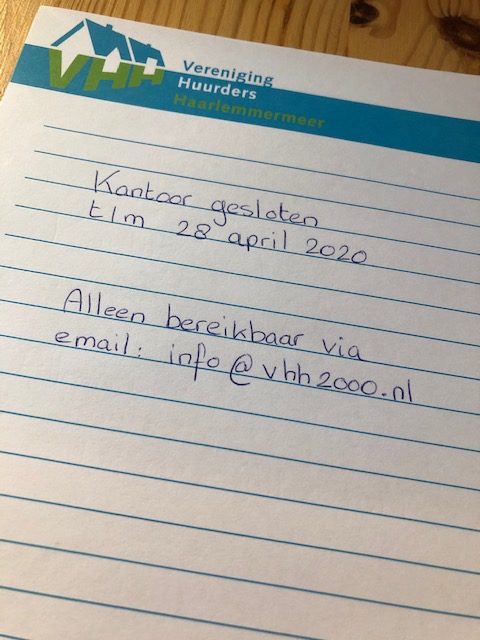 VHH
Vereniging
Huurders
Haarlemmermeer
Kantoor gesloten
t/m 28 april 2020
Alleen bereikbaar via
email: info@vhh2000.nl